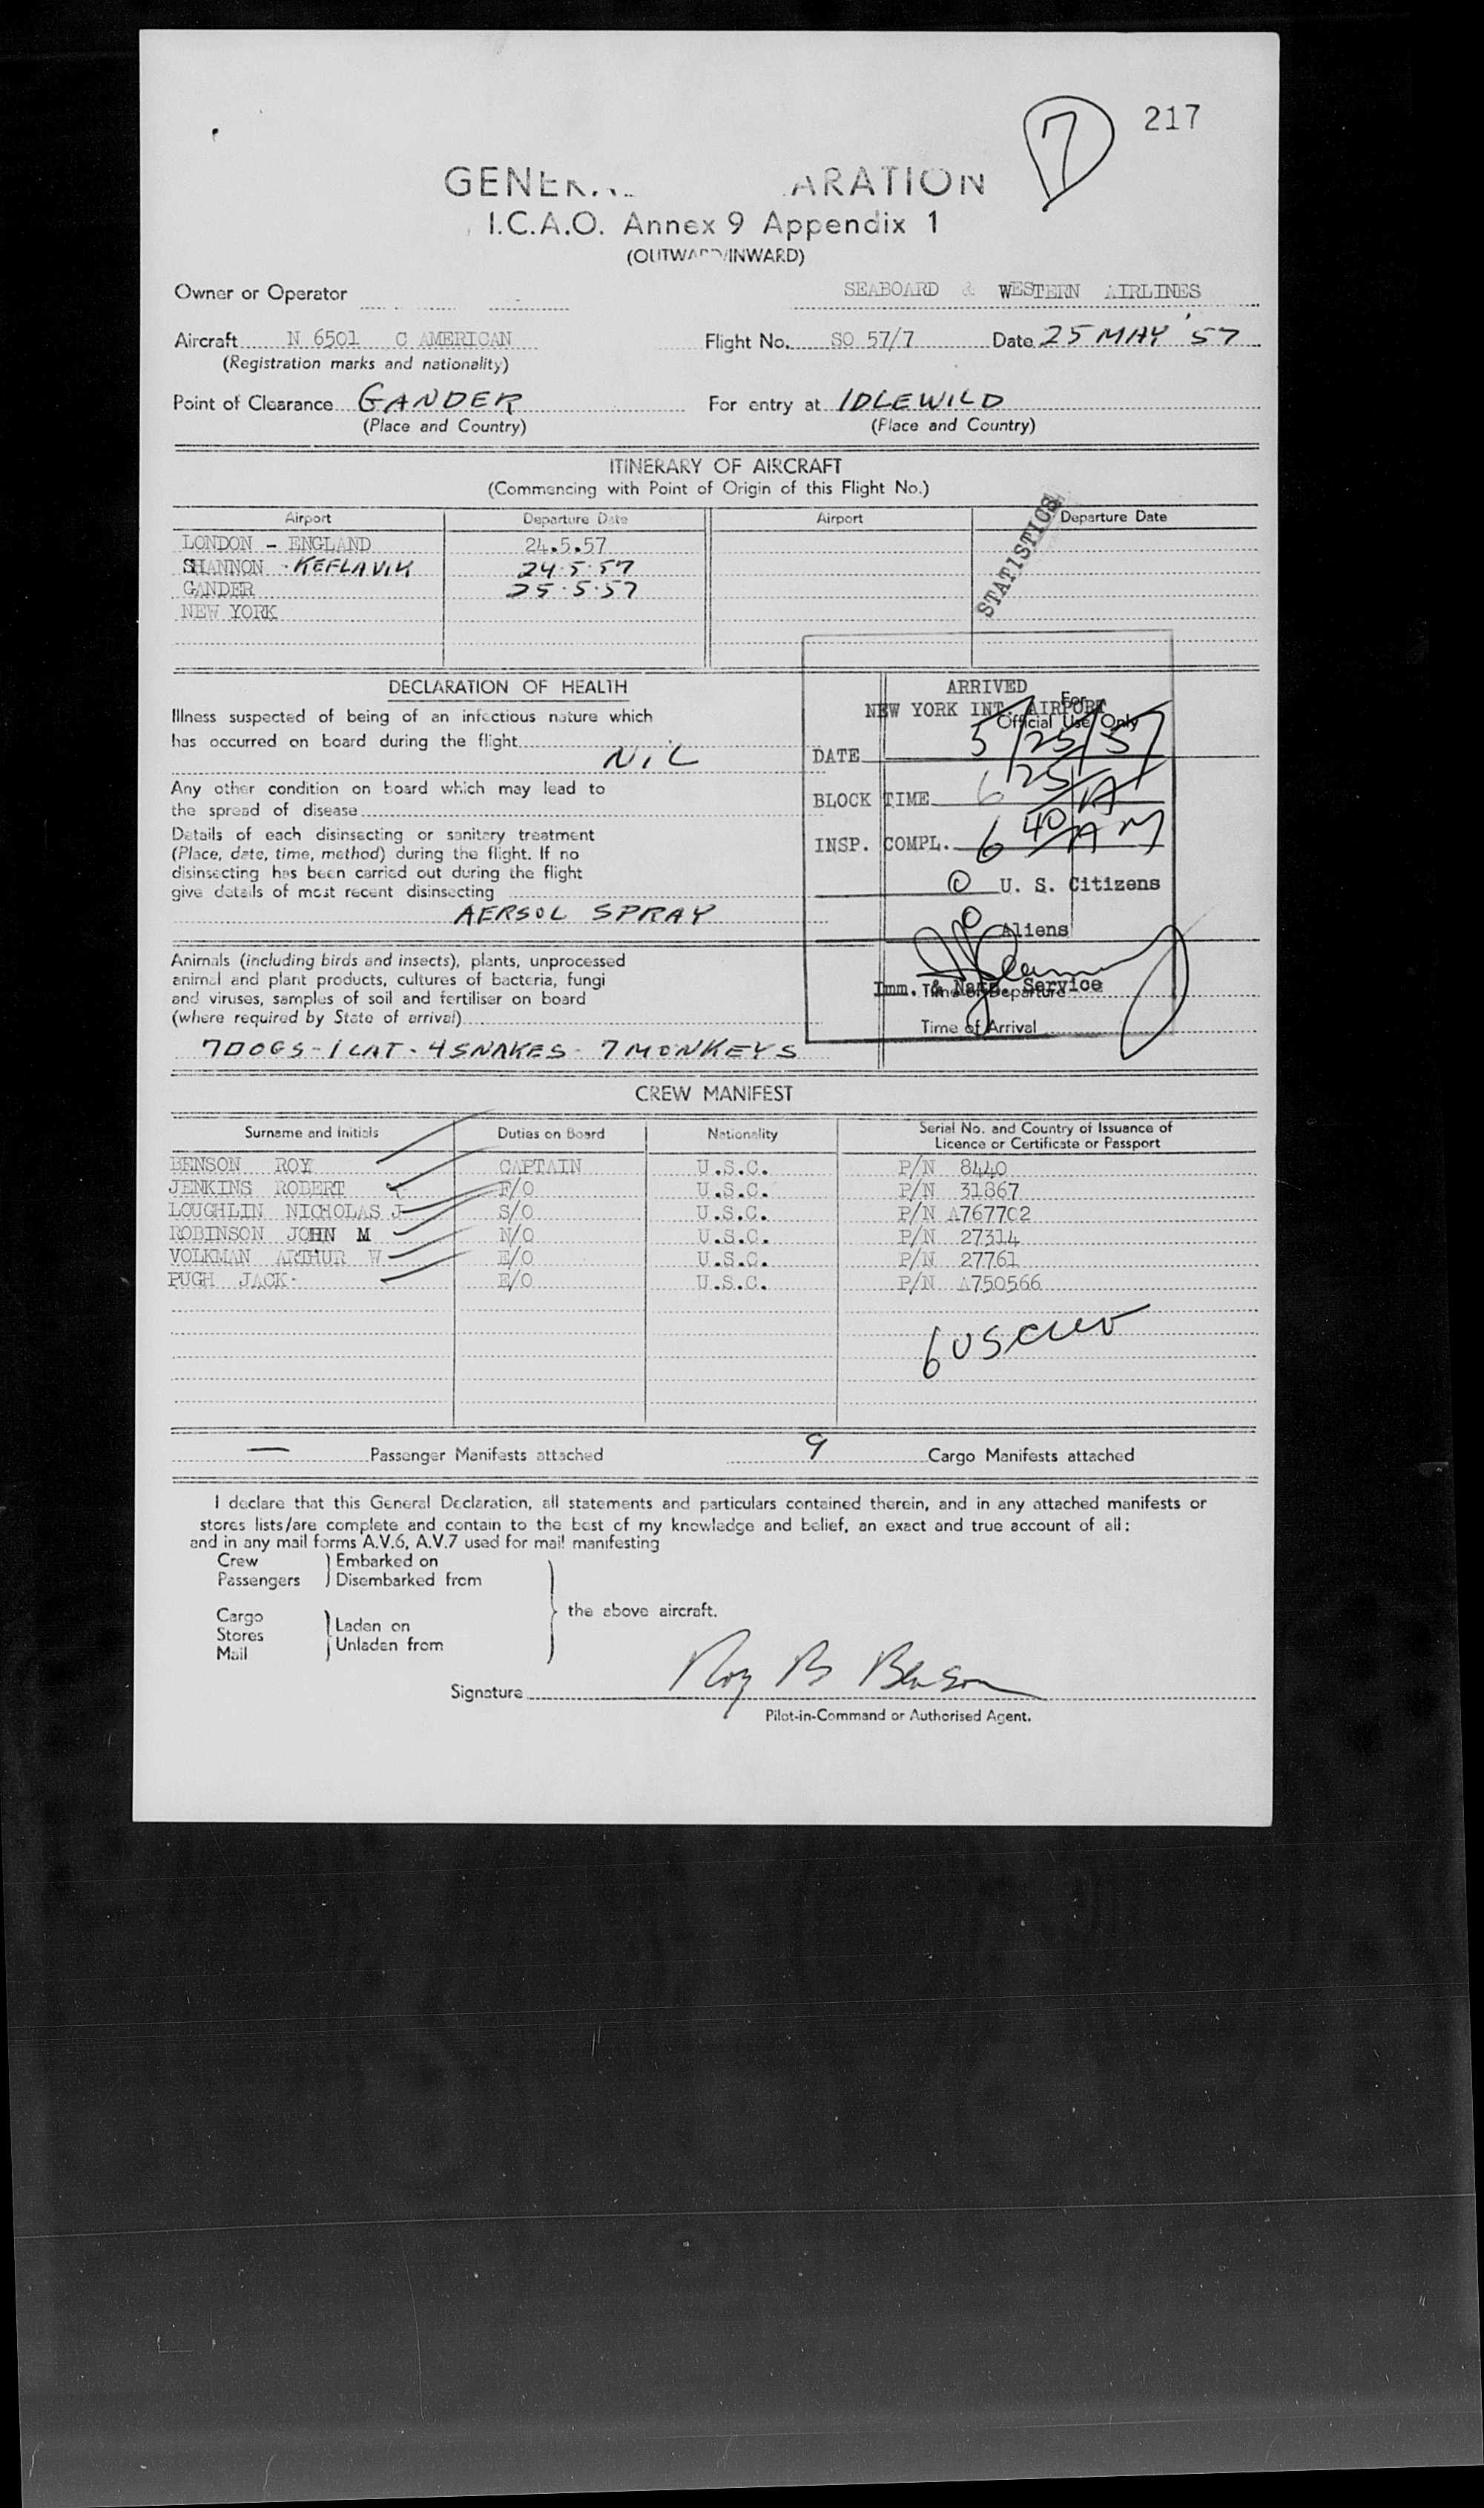 7 217
GENERAL DECLARATION
I.C.A.O. Annex 9 Appendix 1
(OUTWARD/INWARD)
Owner or Operator SEABOARD & WESTERN AIRLINES
Aircraft N 6501 C AMERICAN Flight No. SO 57/7 Date 25 MAY '57
(Registration marks and nationality)
Point of Clearance GANDER For entry at IDLEWILD
(Place and Country) (Place and Country)
ITINERARY OF AIRCRAFT
(Commencing with Point of Origin of this Flight No.)
Airport Departure Date Airport Departure Date
LONDON - ENGLAND 24.5.57
SHANNON - KEFLAVIK 24.5.57
GANDER 25.5.57
NEW YORK
STATISTICS
DECLARATION OF HEALTH
Illness suspected of being of an infectious nature which
has occurred on board during the flight
NIL
Any other condition on board which may lead to
the spread of disease
Details of each disinsecting or sanitary treatment
(Place, date, time, method) during the flight. If no
disinsecting has been carried out during the flight
give details of most recent disinsecting
AERSOL SPRAY
Animals (including birds and insects), plants, unprocessed
animal and plant products, cultures of bacteria, fungi
and viruses, samples of soil and fertiliser on board
(where required by State of arrival)
7 DOGS - 1 CAT - 4 SNAKES - 7 MONKEYS
For
Official Use Only
ARRIVED
NEW YORK INT. AIRPORT
DATE 5/25/57
BLOCK TIME 6 25/A
INSP. COMPL. 6 40/AM
0 U. S. Citizens
0 Aliens
Imm. & Natz. Service
Time of Departure
Time of Arrival
CREW MANIFEST
Surname and Initials Duties on Board Nationality Serial No. and Country of Issuance of
Licence or Certificate or Passport
BENSON ROY CAPTAIN U.S.C. P/N 8440
JENKINS ROBERT F/O U.S.C. P/N 31867
LOUGHLIN NICHOLAS J S/O U.S.C. P/N A767702
ROBINSON JOHN M N/O U.S.C. P/N 27314
VOLKMAN ARTHUR W E/O U.S.C. P/N 27761
PUGH JACK E/O U.S.C. P/N A750566
6 US crew
— Passenger Manifests attached 9 Cargo Manifests attached
I declare that this General Declaration, all statements and particulars contained therein, and in any attached manifests or
stores lists/are complete and contain to the best of my knowledge and belief, an exact and true account of all:
and in any mail forms A.V.6, A.V.7 used for mail manifesting
Crew Embarked on
Passengers Disembarked from
the above aircraft.
Cargo
Stores Laden on
Mail Unladen from
Signature Roy B Benson
Pilot-in-Command or Authorised Agent.